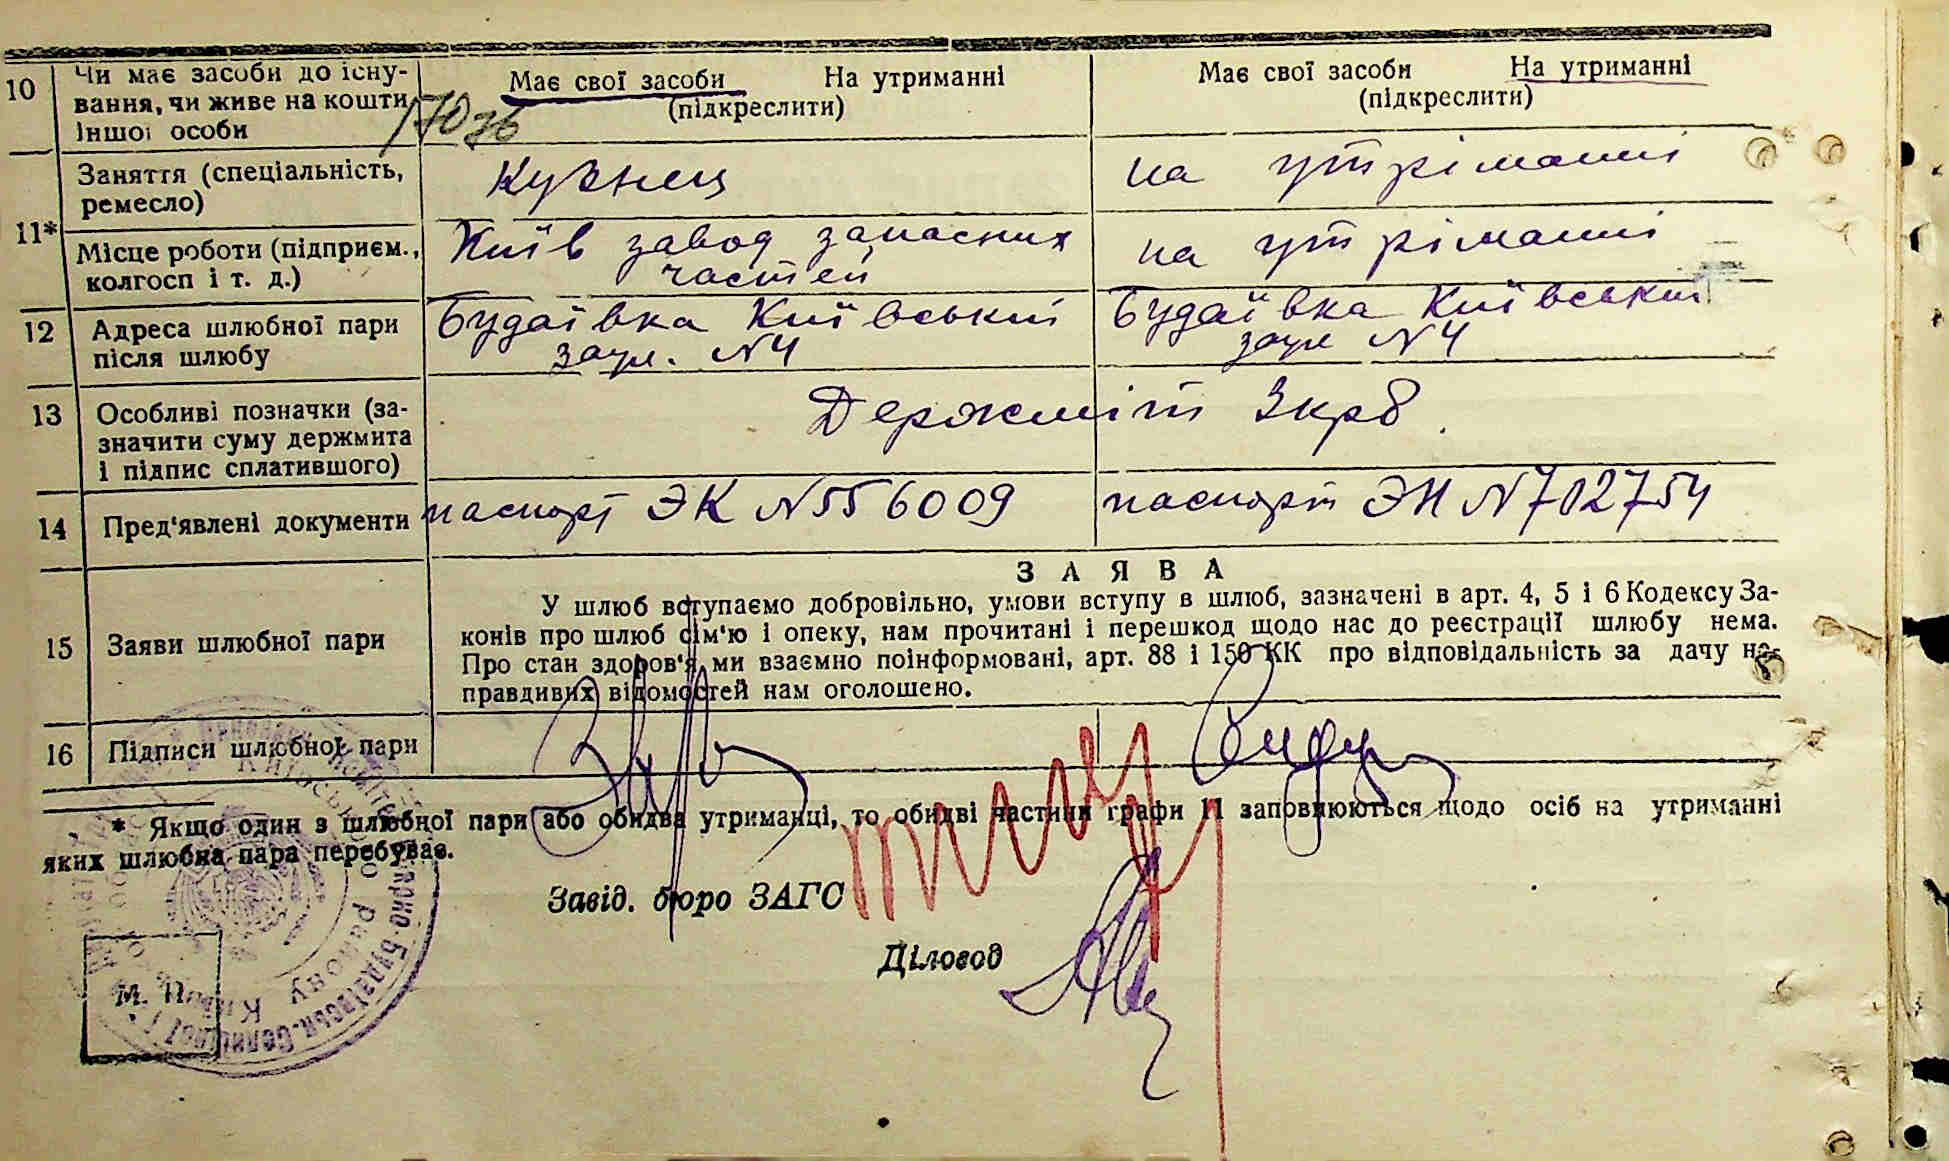 10 Чи має засоби до існу-
вання, чи живе на кошти
іншої особи
Має свої засоби На утриманні
(підкреслити)
Має свої засоби На утриманні
(підкреслити)
170
11* Заняття (спеціальність,
ремесло)
Кузнец
на утріманні
Місце роботи (підприєм.,
колгосп і т. д.)
Київ завод запасних
частей
на утріманні
12 Адреса шлюбної пари
після шлюбу
Будаївка Київський
заул. N4
Будаївка Київський
заул N4
13 Особливі позначки (за-
значити суму держмита
і підпис сплатившого)
Держміт 3крб.
14 Пред'явлені документи
паспорт ЭК N556009
паспорт ЭН N712754
ЗАЯВА
15 Заяви шлюбної пари
У шлюб вступаємо добровільно, умови вступу в шлюб, зазначені в арт. 4, 5 і 6 Кодексу За-
конів про шлюб сім'ю і опеку, нам прочитані і перешкод щодо нас до реєстрації шлюбу нема.
Про стан здоров'я ми взаємно поінформовані, арт. 88 і 150 КК про відповідальність за дачу не-
правдивих відомостей нам оголошено.
16 Підписи шлюбної пари
* Якщо один з шлюбної пари або обидва утриманці, то обидві частини графи 11 заповнюються щодо осіб на утриманні
яких шлюбна пара перебуває.
Завід. бюро ЗАГС
Діловод
М. П.